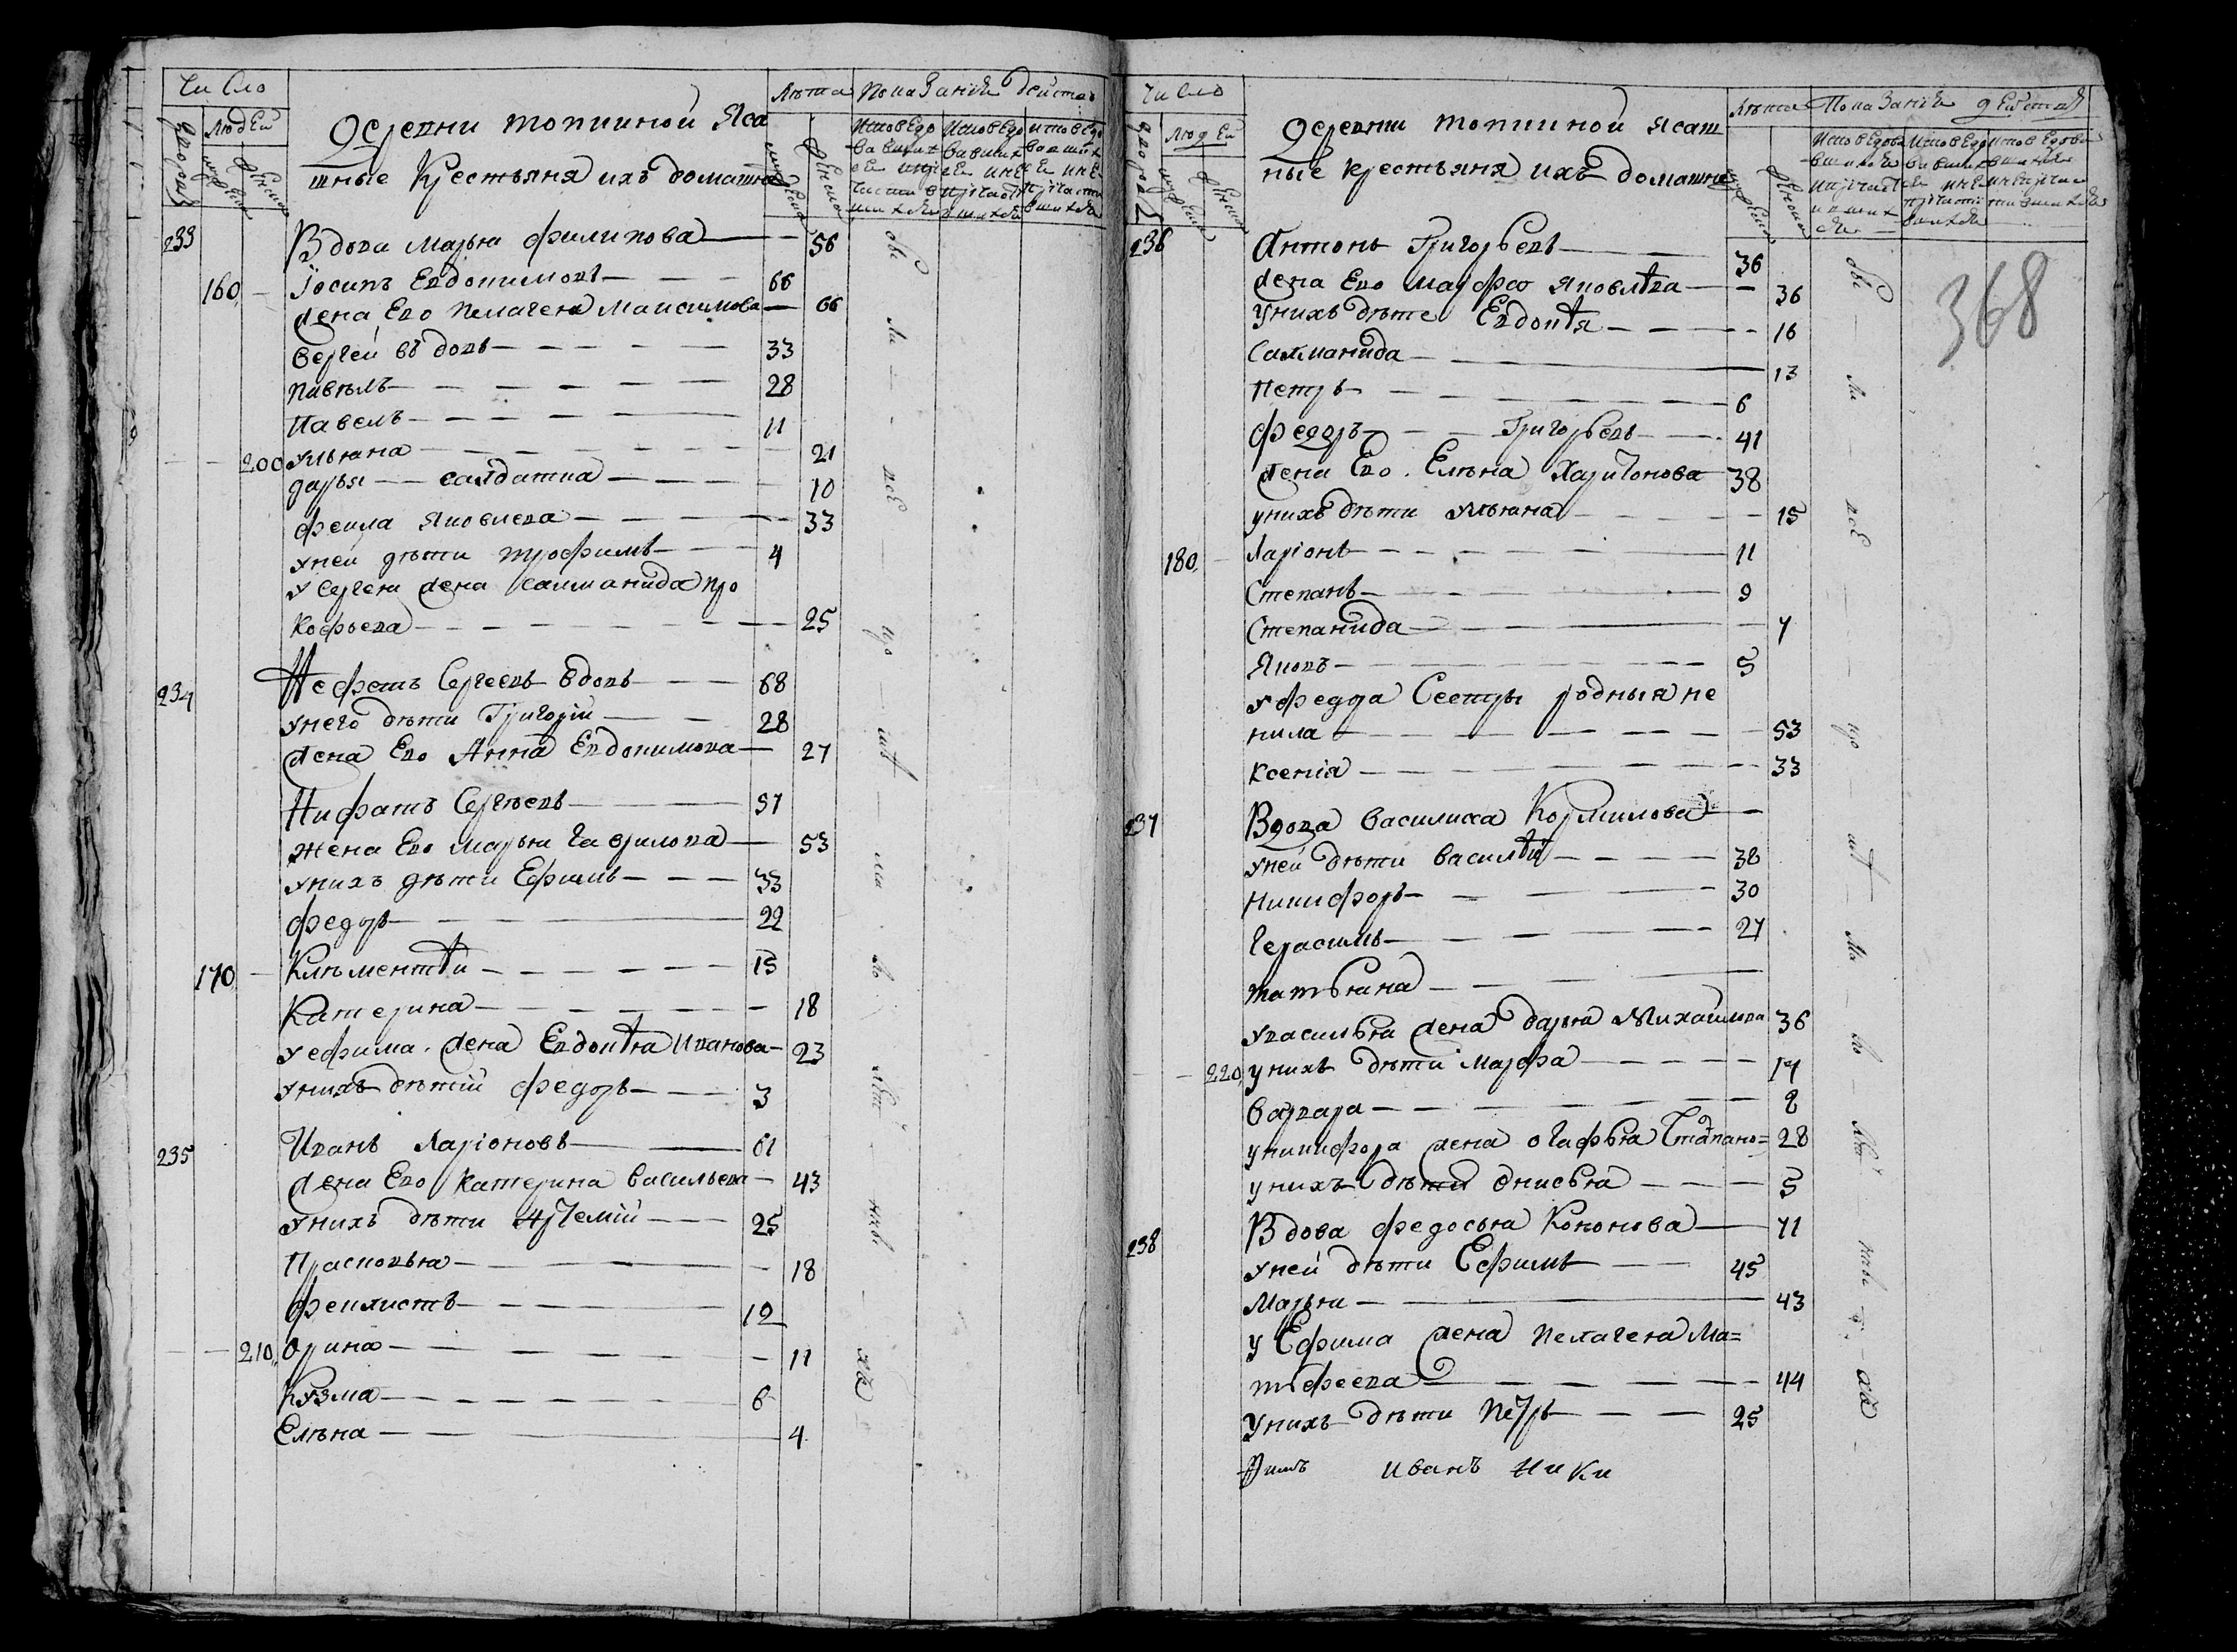 Число
Людей
Лѣта
Показаніе действ
Деревни топкиной Яса
шные Крестьяня ихъ домашне
233 Вдова Марья филипова — 56
160 Іосипъ Евдокимовъ — 66
Жена Ево Пелагея Максимова — 66
Сергей вдовъ — 33
Павѣлъ — 28
Павелъ — 11
200 Ульяна — 21
Дарья — салдатка — 10
фекла Яковлева — 33
у ней дѣти трофимъ — 4
у Сергея жена Саломанида про
кофьева — 25
234 Нефетъ Сергеевъ вдовъ — 68
у него дѣти Григорій — 28
Жена Ево Анна Евдокимова — 27
Нифатъ Сергѣевъ — 57
жена Ево Марья гаврилова — 53
у нихъ дѣти Ефимъ — 33
федоръ — 22
170 Клѣментѣй — 15
Катерина — 18
у ефима жена Евдокѣя Иванова — 23
у нихъ дѣтій федоръ — 3
235 Иванъ Ларіоновъ — 61
Жена Ево Катерина васильева — 43
у нихъ дѣти Артемій — 25
Прасковья — 18
феклистъ — 12
210 Орина — 11
Кузма — 6
Елѣна — 4
Число
Людей
Лѣта
Показаніе действ
Деревни топкиной Ясаш
ные крестьяня ихъ домашне
368
236 Антонъ Григорьевъ — 36
жена Ево Марфа Яковлѣва — 36
у нихъ дѣте Евдокѣя — 16
Саломанида — 13
Петръ — 6
федоръ — Григорьевъ — 41
жена Ево Елѣна Харитонова 38
у нихъ дѣти Ульяна — 15
180 Ларіонъ — 11
Степанъ — 9
Степанида — 7
Яковъ — 5
у федора Сестры родныя не
нила — 53
Ксенія — 33
237 Вдова василиса Кормилова —
у ней дѣти василѣй — 38
никифоръ — 30
герасимъ — 27
татьяна —
у василья жена дарья Михайлова 36
220 у нихъ дѣти Марфа — 17
варвара — 8
у никифора жена огафья Стапано= 28
у нихъ дѣти онисья — 5
238 Вдова федосья Кононова — 71
у ней дѣти Ефимъ — 45
Марья — 43
у Ефима жена пелагея Ма=
тфеева — 44
у нихъ дѣти Петръ — 25
Иванъ Ники